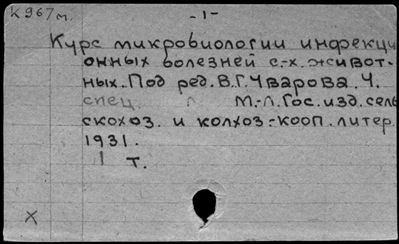 К967м.
-1-
Курс микробиологии инфекци
онных болезней с.-х. живот-
ных. Под ред. В.Г. Уварова. Ч.
спец. М.-Л. Гос. изд. сель
скохоз. и колхоз.-кооп. литер.
1931.
1 т.
X